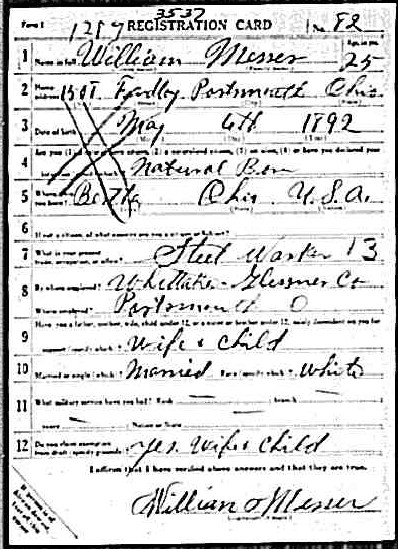 3537
Form 1 1287 REGISTRATION CARD No. 82
1 Name in full William Messer Age, in yrs. 25
2 Home address 1501 Portsmouth Ohio
3 Date of birth May 6th 1892
4 Are you (1) a natural-born citizen, (2) a naturalized citizen, (3) an alien, (4) or have you declared your
Natural Born
5 Where were you born? Ohio U.S.A.
6 If not a citizen, of what country are you a citizen or subject?
7 What is your present trade, occupation, or office? Steel Worker 13
8 By whom employed? Whittaker-Glessner Co
Where employed? Portsmouth O
9 Have you a father, mother, wife, child under 12, or a sister or brother under 12, solely dependent on you for
support (specify which)? Wife & Child
10 Married or single (which)? Married Race (specify which)? White
11 What military service have you had? Rank — branch —
years — Nation or State —
12 Do you claim exemption from draft (specify grounds)? Yes. Wife & Child
I affirm that I have verified above answers and that they are true.
William Messer